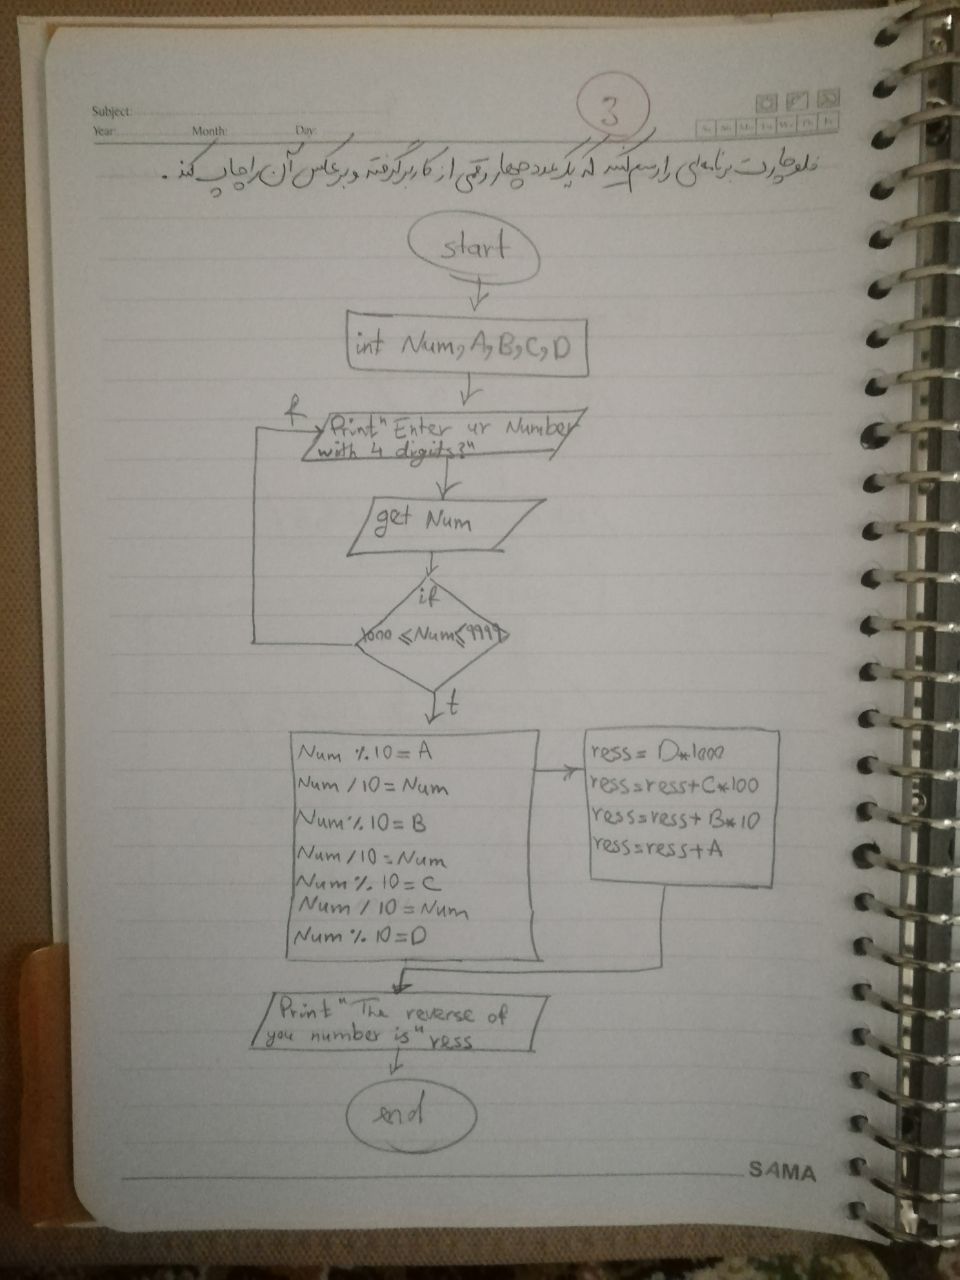 Subject:
Year: Month: Day:
3
Sa Su Mo Tu We Th Fr
فلوچارت برنامه‌ای را رسم کنید که یک عدد چهار رقمی از کاربر گرفته و برعکس آن را چاپ کند.
start
int Num, A, B, C, D
f
Print" Enter ur Number
with 4 digits:"
get Num
if
1000 ≤ Num ≤ 9999
t
Num % 10 = A
Num / 10 = Num
Num % 10 = B
Num / 10 = Num
Num % 10 = C
Num / 10 = Num
Num % 10 = D
ress = D*1000
ress=ress+C*100
ress=ress+B*10
ress=ress+A
Print" The reverse of
you number is" ress
end
SAMA